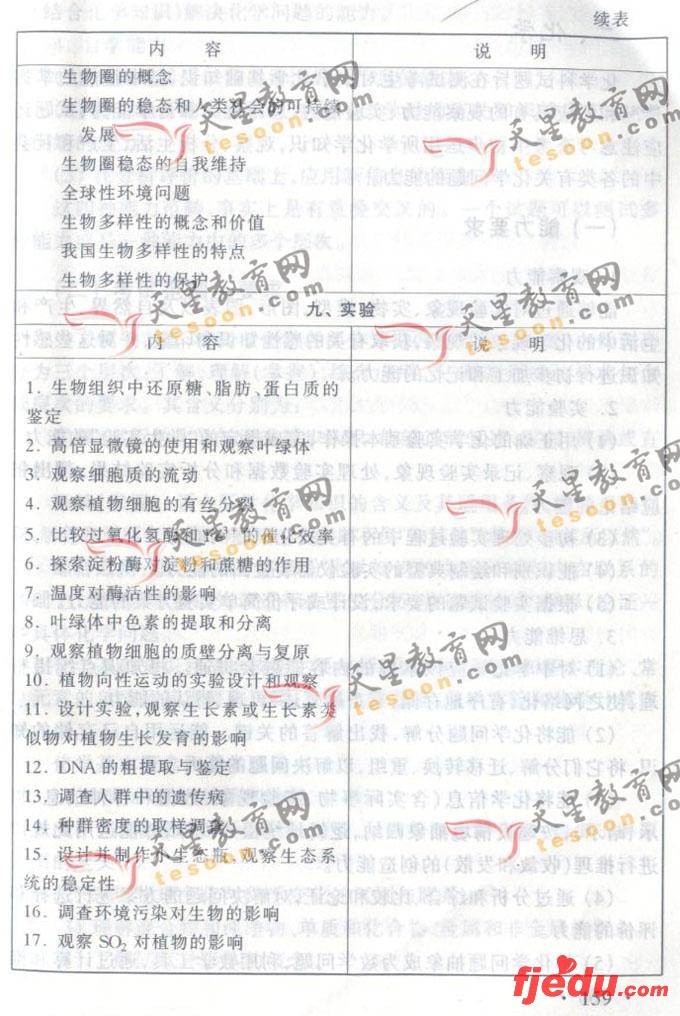 续表
内 容 说 明
生物圈的概念
生物圈的稳态和人类社会的可持续
发展
生物圈稳态的自我维持
全球性环境问题
生物多样性的概念和价值
我国生物多样性的特点
生物多样性的保护
九、实验
内 容 说 明
1. 生物组织中还原糖、脂肪、蛋白质的
鉴定
2. 高倍显微镜的使用和观察叶绿体
3. 观察细胞质的流动
4. 观察植物细胞的有丝分裂
5. 比较过氧化氢酶和 的催化效率
6. 探索淀粉酶对淀粉和蔗糖的作用
7. 温度对酶活性的影响
8. 叶绿体中色素的提取和分离
9. 观察植物细胞的质壁分离与复原
10. 植物向性运动的实验设计和观察
11. 设计实验，观察生长素或生长素类
似物对植物生长发育的影响
12. DNA的粗提取与鉴定
13. 调查人群中的遗传病
14. 种群密度的取样调查
15. 设计并制作小生态瓶，观察生态系
统的稳定性
16. 调查环境污染对生物的影响
17. 观察SO₂对植物的影响
· 159 ·
天星教育网
tesoon.com
天星教育网
tesoon.com
天星教育网
tesoon.com
天星教育网
tesoon.com
天星教育网
tesoon.com
天星教育网
tesoon.com
天星教育网
tesoon.com
天星教育网
tesoon.com
天星教育网
tesoon.com
天星教育网
tesoon.com
fjedu.com